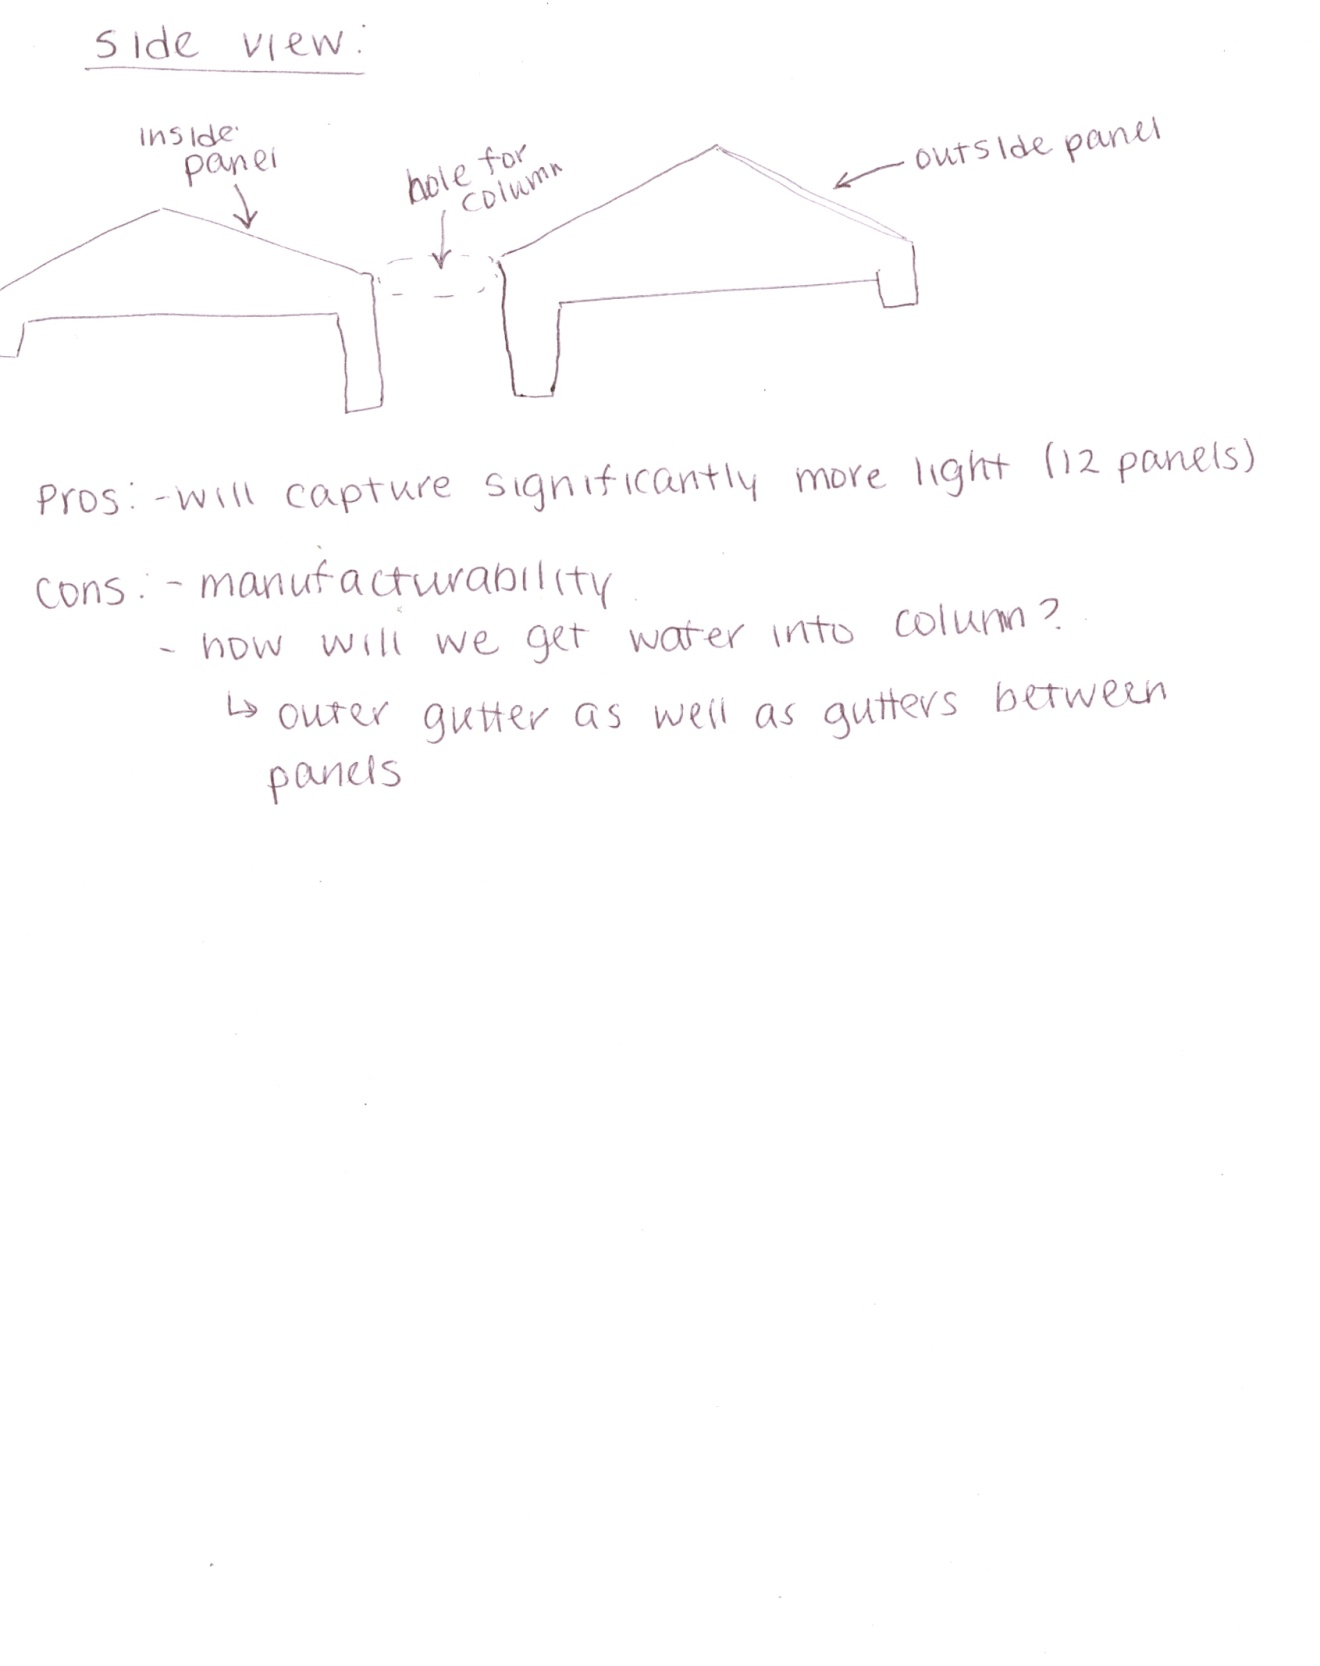 Side view:
inside
panel
hole for
column
outside panel
Pros: - will capture significantly more light (12 panels)
Cons: - manufacturability
- how will we get water into column?
↳ outer gutter as well as gutters between
panels